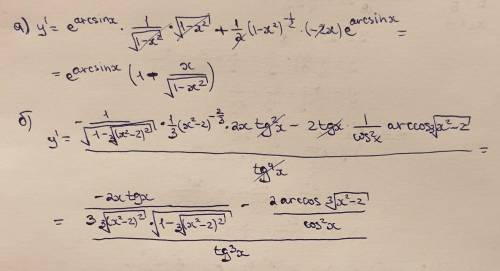 а) y' = e^{arcsinx} · \frac{1}{\sqrt{1-x^2}} · \sqrt{1-x^2} + \frac{1}{2} (1-x^2)^{-\frac{1}{2}} · (-2x) e^{arcsinx} =
= e^{arcsinx} (1 - \frac{x}{\sqrt{1-x^2}})
б) y' = \frac{-\frac{1}{\sqrt{1-\sqrt[3]{(x^2-2)^2}}} · \frac{1}{3} (x^2-2)^{-\frac{2}{3}} · 2x tg^2x - 2tgx · \frac{1}{cos^2x} arccos\sqrt[3]{x^2-2}}{tg^4x} =
= \frac{\frac{-2x tgx}{3\sqrt[3]{(x^2-2)^2} · \sqrt{1-\sqrt[3]{(x^2-2)^2}}} - \frac{2arccos\sqrt[3]{x^2-2}}{cos^2x}}{tg^3x}